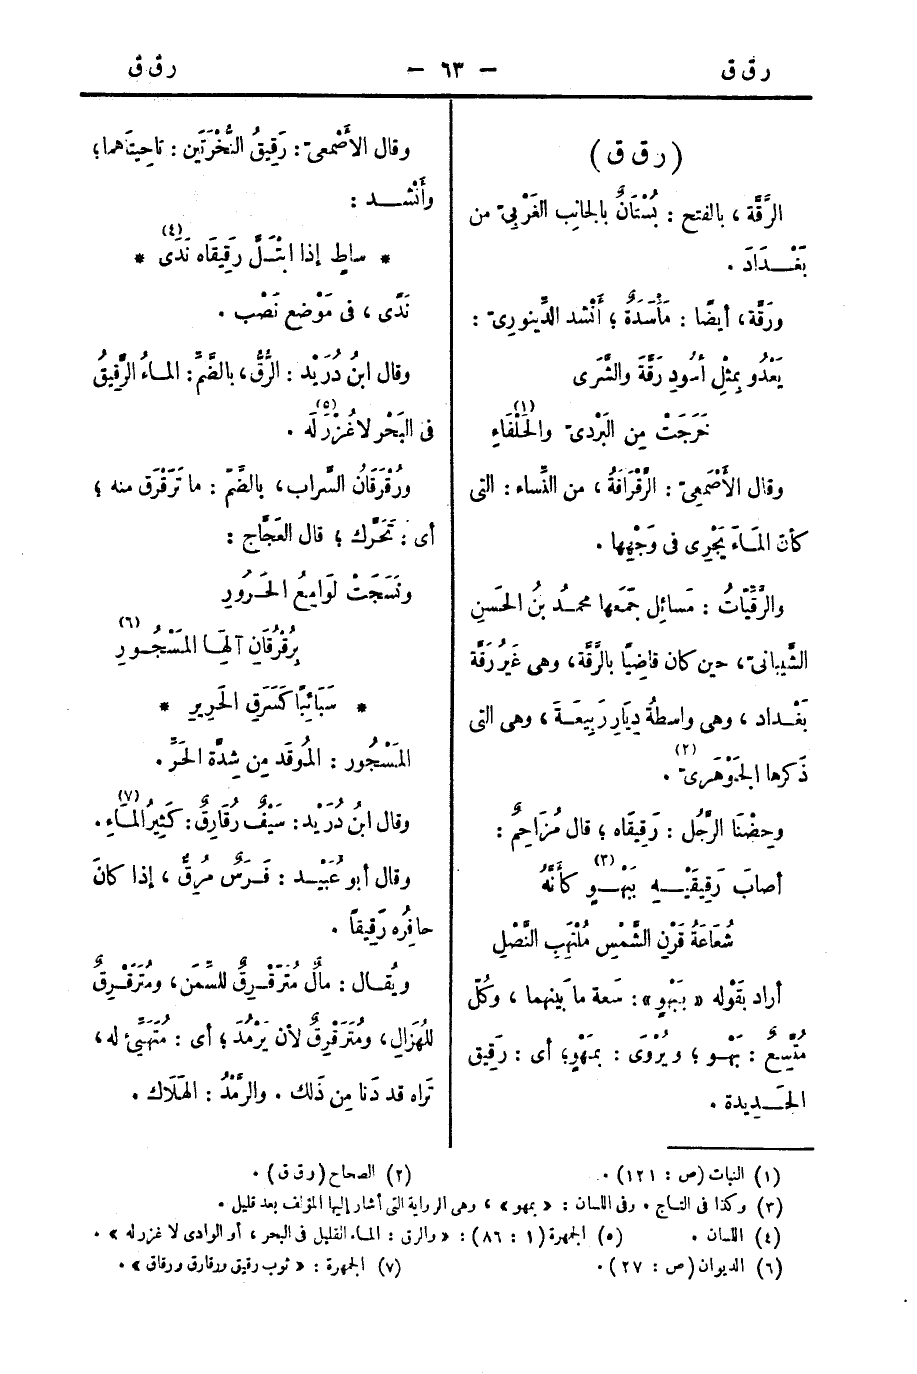 رق ق
— ٦٣ —
رق ق
(رق ق)
الرَّقَّة ، بالفتح : بُسْتَانٌ بالجانب الغَرْبِىّ من
بَغْـدَادَ .
ورَقَّة، أيضًا : مَأْسَدَةٌ ؛ أَنْشد الدِّينورِىّ :
يَعْدُو بِمِثْلِ أُسُودِ رَقَّةَ والشَّرَى
خَرَجَتْ مِن البَرْدِىّ والحَلْفَاءِ (١)
وقال الأَصْمَعِىّ : الرَّقْرَاقَةُ ، من النِّساء : التى
كأنّ المَـاءَ يَجْرِى فى وَجْهِها .
والرَّقِّيَّاتُ : مَسائل جَمَعها محمدُ بنُ الحَسَنِ
الشَّيبانىّ ، حين كان قاضيًا بالرَّقَّة، وهى غَيرُ رَقَّة
بَغْـداد ، وهى واسطةُ دِيَارِ رَبِيعَـةَ ، وهى التى
ذَكرها الجَوْهَرِىّ (٢) .
وحِضْنَا الرَّجُل : رَقِيقَاه ؛ قال مُزَاحِمٌ :
أصابَ رَقِيقَيْـهِ بِبَهْـوٍ (٣) كأَنَّهُ
شُعَاعَةُ قَرْنِ الشَّمْسِ مُلْتَهِبِ النَّصْلِ
أراد بقَوْله « بِبَهْوٍ » : سَعة ما بَينهما ، وكُلّ
مُتَّسِعٍ : بَهْـو ؛ ويُرْوَى : بمَهْوٍ؛ أى : رَقِيق
الحَـدِيدة .
وقال الأَصْمعىّ : رَقِيقُ النُّخْرَتَين : ناحِيتَاهما ؛
وأَنْشـد :
* ساطٍ إذا ابْتَـلَّ رَقِيقَاه نَدَى (٤) *
نَدًى ، فى مَوْضع نَصْب .
وقال ابنُ دُرَيْد : الرُّقُّ ، بالضَّمّ : المـاءُ الرَّقيقُ
فى البَحْر لا غُزْرَ لَه (٥) .
ورُقْرَقَانُ السَّراب ، بالضَّمّ : ما تَرَقْرَق منه ؛
أى : تَحَرَّك ؛ قال العَجَّاج :
ونَسَجَتْ لَوَامِعُ الحَـرُورِ
بِرُقْرُقَانِ آلِهَـا المَسْجُـورِ (٦)
* سَبَائبًا كَسَرَقِ الحَرِيرِ *
المَسْجُور : المُوقَد مِن شِدَّة الحَرّ .
وقال ابنُ دُرَيْد : سَيْفٌ رُقَارِقٌ : كَثِيرُ المَـاءِ (٧) .
وقال أبو عُبَيْـد : فَـرَسٌ مُرِقٌّ ، إذا كانَ
حافِرُه رَقِيقًا .
ويُقـال : مالٌ مُتَرَقْـرِقٌ للسِّمَن ، ومُتَرَقْـرِقٌ
للهُزَالِ ، ومُتَرَقْرِقٌ لأن يَرْمُدَ ؛ أى : مُتَهَيِّئٌ له ،
تَراه قد دَنا مِن ذَلك . والرَّمْدُ : الهَلَاك .
(١) النبات (ص : ١٢١) .
(٢) الصحاح (رق ق) .
(٣) وكذا فى التـاج . وفى اللسان : « بمهو » ، وهى الرواية التى أشار إليها المؤلف بعد قليل .
(٤) اللسان .
(٥) الجمهرة (١ : ٨٦) : « والرق : المـاء القليل فى البحر ، أو الوادى لا غزر له » .
(٦) الديوان (ص : ٢٧) .
(٧) الجمهرة : « ثوب رقيق ورقارق ورقاق » .